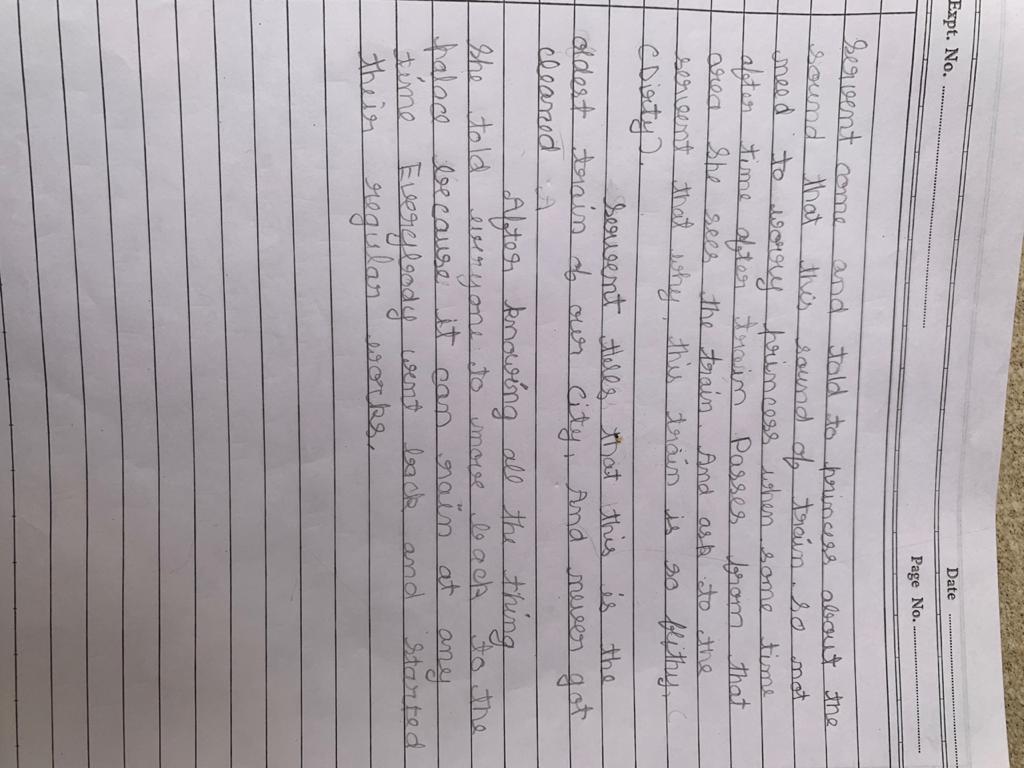 Expt. No.
Date
Page No.
Servent come and told to princess about the
sound that this sound of train. So not
need to worry princess when some time
after time after train Passes from that
area She sees the train. And ask to the
servent that why, this train is so filthy, (
(Dirty).
Servent tells that this is the
oldest train of our city, And never got
cleaned A
After knowing all the thing
She told everyone to move back to the
palace because it can rain at any
time Everybody went back and started
their regular works.